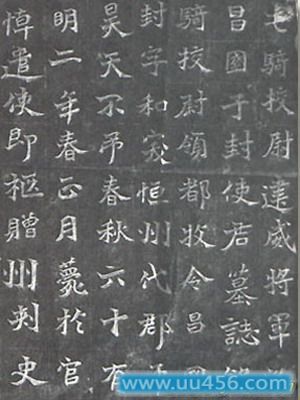 屯騎校尉建威將軍
昌國子封使君墓誌銘
騎校尉領都牧令昌國
封字和突恒州代郡平
昊天不弔春秋六十有
明二年春正月薨於官
悼遣使即柩贈州刾史
www.uu456.com